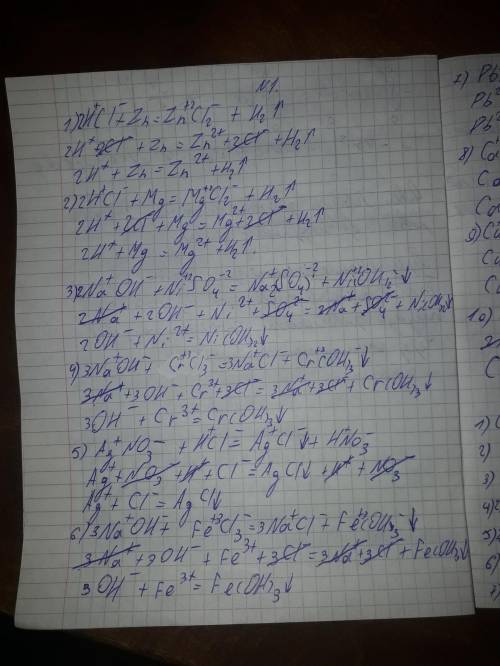 №1.
1) 2H⁺Cl⁻ + Zn = Zn⁺²Cl₂⁻ + H₂↑
2H⁺ + 2Cl⁻ + Zn = Zn²⁺ + 2Cl⁻ + H₂↑
2H⁺ + Zn = Zn²⁺ + H₂↑
2) 2H⁺Cl⁻ + Mg = Mg⁺²Cl₂⁻ + H₂↑
2H⁺ + 2Cl⁻ + Mg = Mg²⁺ + 2Cl⁻ + H₂↑
2H⁺ + Mg = Mg²⁺ + H₂↑.
3) 2Na⁺OH⁻ + Ni⁺²SO₄⁻² = Na₂⁺(SO₄)⁻² + Ni⁺²(OH)₂⁻↓
2Na⁺ + 2OH⁻ + Ni²⁺ + SO₄²⁻ = 2Na⁺ + SO₄²⁻ + Ni(OH)₂↓
2OH⁻ + Ni²⁺ = Ni(OH)₂↓
4) 3Na⁺OH⁻ + Cr⁺³Cl₃⁻ = 3Na⁺Cl⁻ + Cr⁺³(OH)₃⁻↓
3Na⁺ + 3OH⁻ + Cr³⁺ + 3Cl⁻ = 3Na⁺ + 3Cl⁻ + Cr(OH)₃↓
3OH⁻ + Cr³⁺ = Cr(OH)₃↓
5) Ag⁺NO₃⁻ + H⁺Cl⁻ = Ag⁺Cl⁻↓ + H⁺NO₃⁻
Ag⁺ + NO₃⁻ + H⁺ + Cl⁻ = AgCl↓ + H⁺ + NO₃⁻
Ag⁺ + Cl⁻ = AgCl↓
6) 3Na⁺OH⁻ + Fe⁺³Cl₃⁻ = 3Na⁺Cl⁻ + Fe⁺³(OH)₃⁻↓
3Na⁺ + 3OH⁻ + Fe³⁺ + 3Cl⁻ = 3Na⁺ + 3Cl⁻ + Fe(OH)₃↓
3OH⁻ + Fe³⁺ = Fe(OH)₃↓
7) Pb
Pb
Pb
8)
9)
10
1)
2)
3)
4)
5)
6)